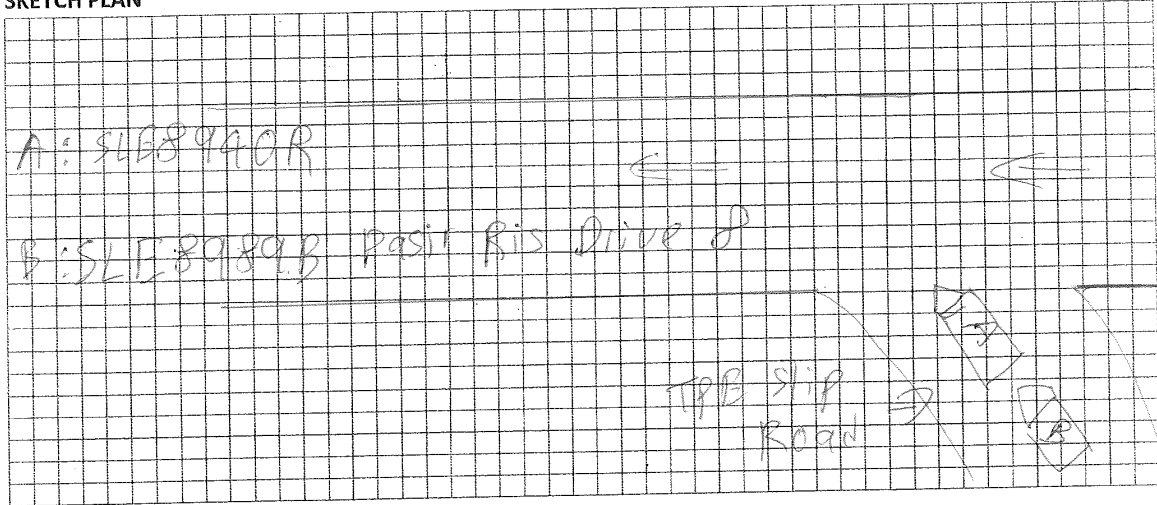 SKETCH PLAN
A: SLE8940R
B: SLE8989B Pasir Ris Drive 8
TPE Slip
Road
A
B